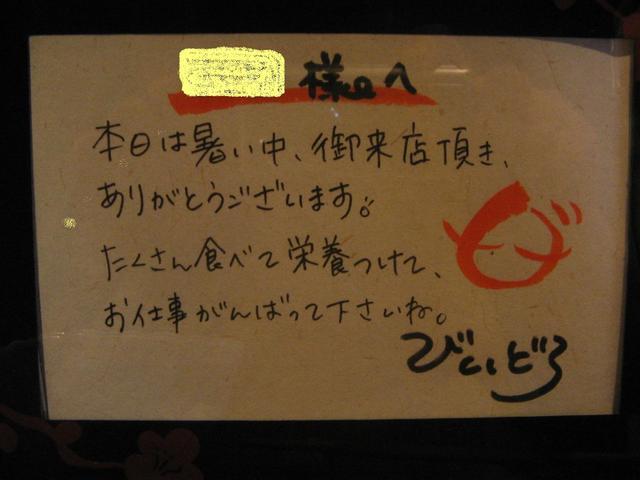 様へ
本日は暑い中、御来店頂き、
ありがとうございます。
たくさん食べて栄養つけて、
お仕事がんばって下さいね。
びいどろ